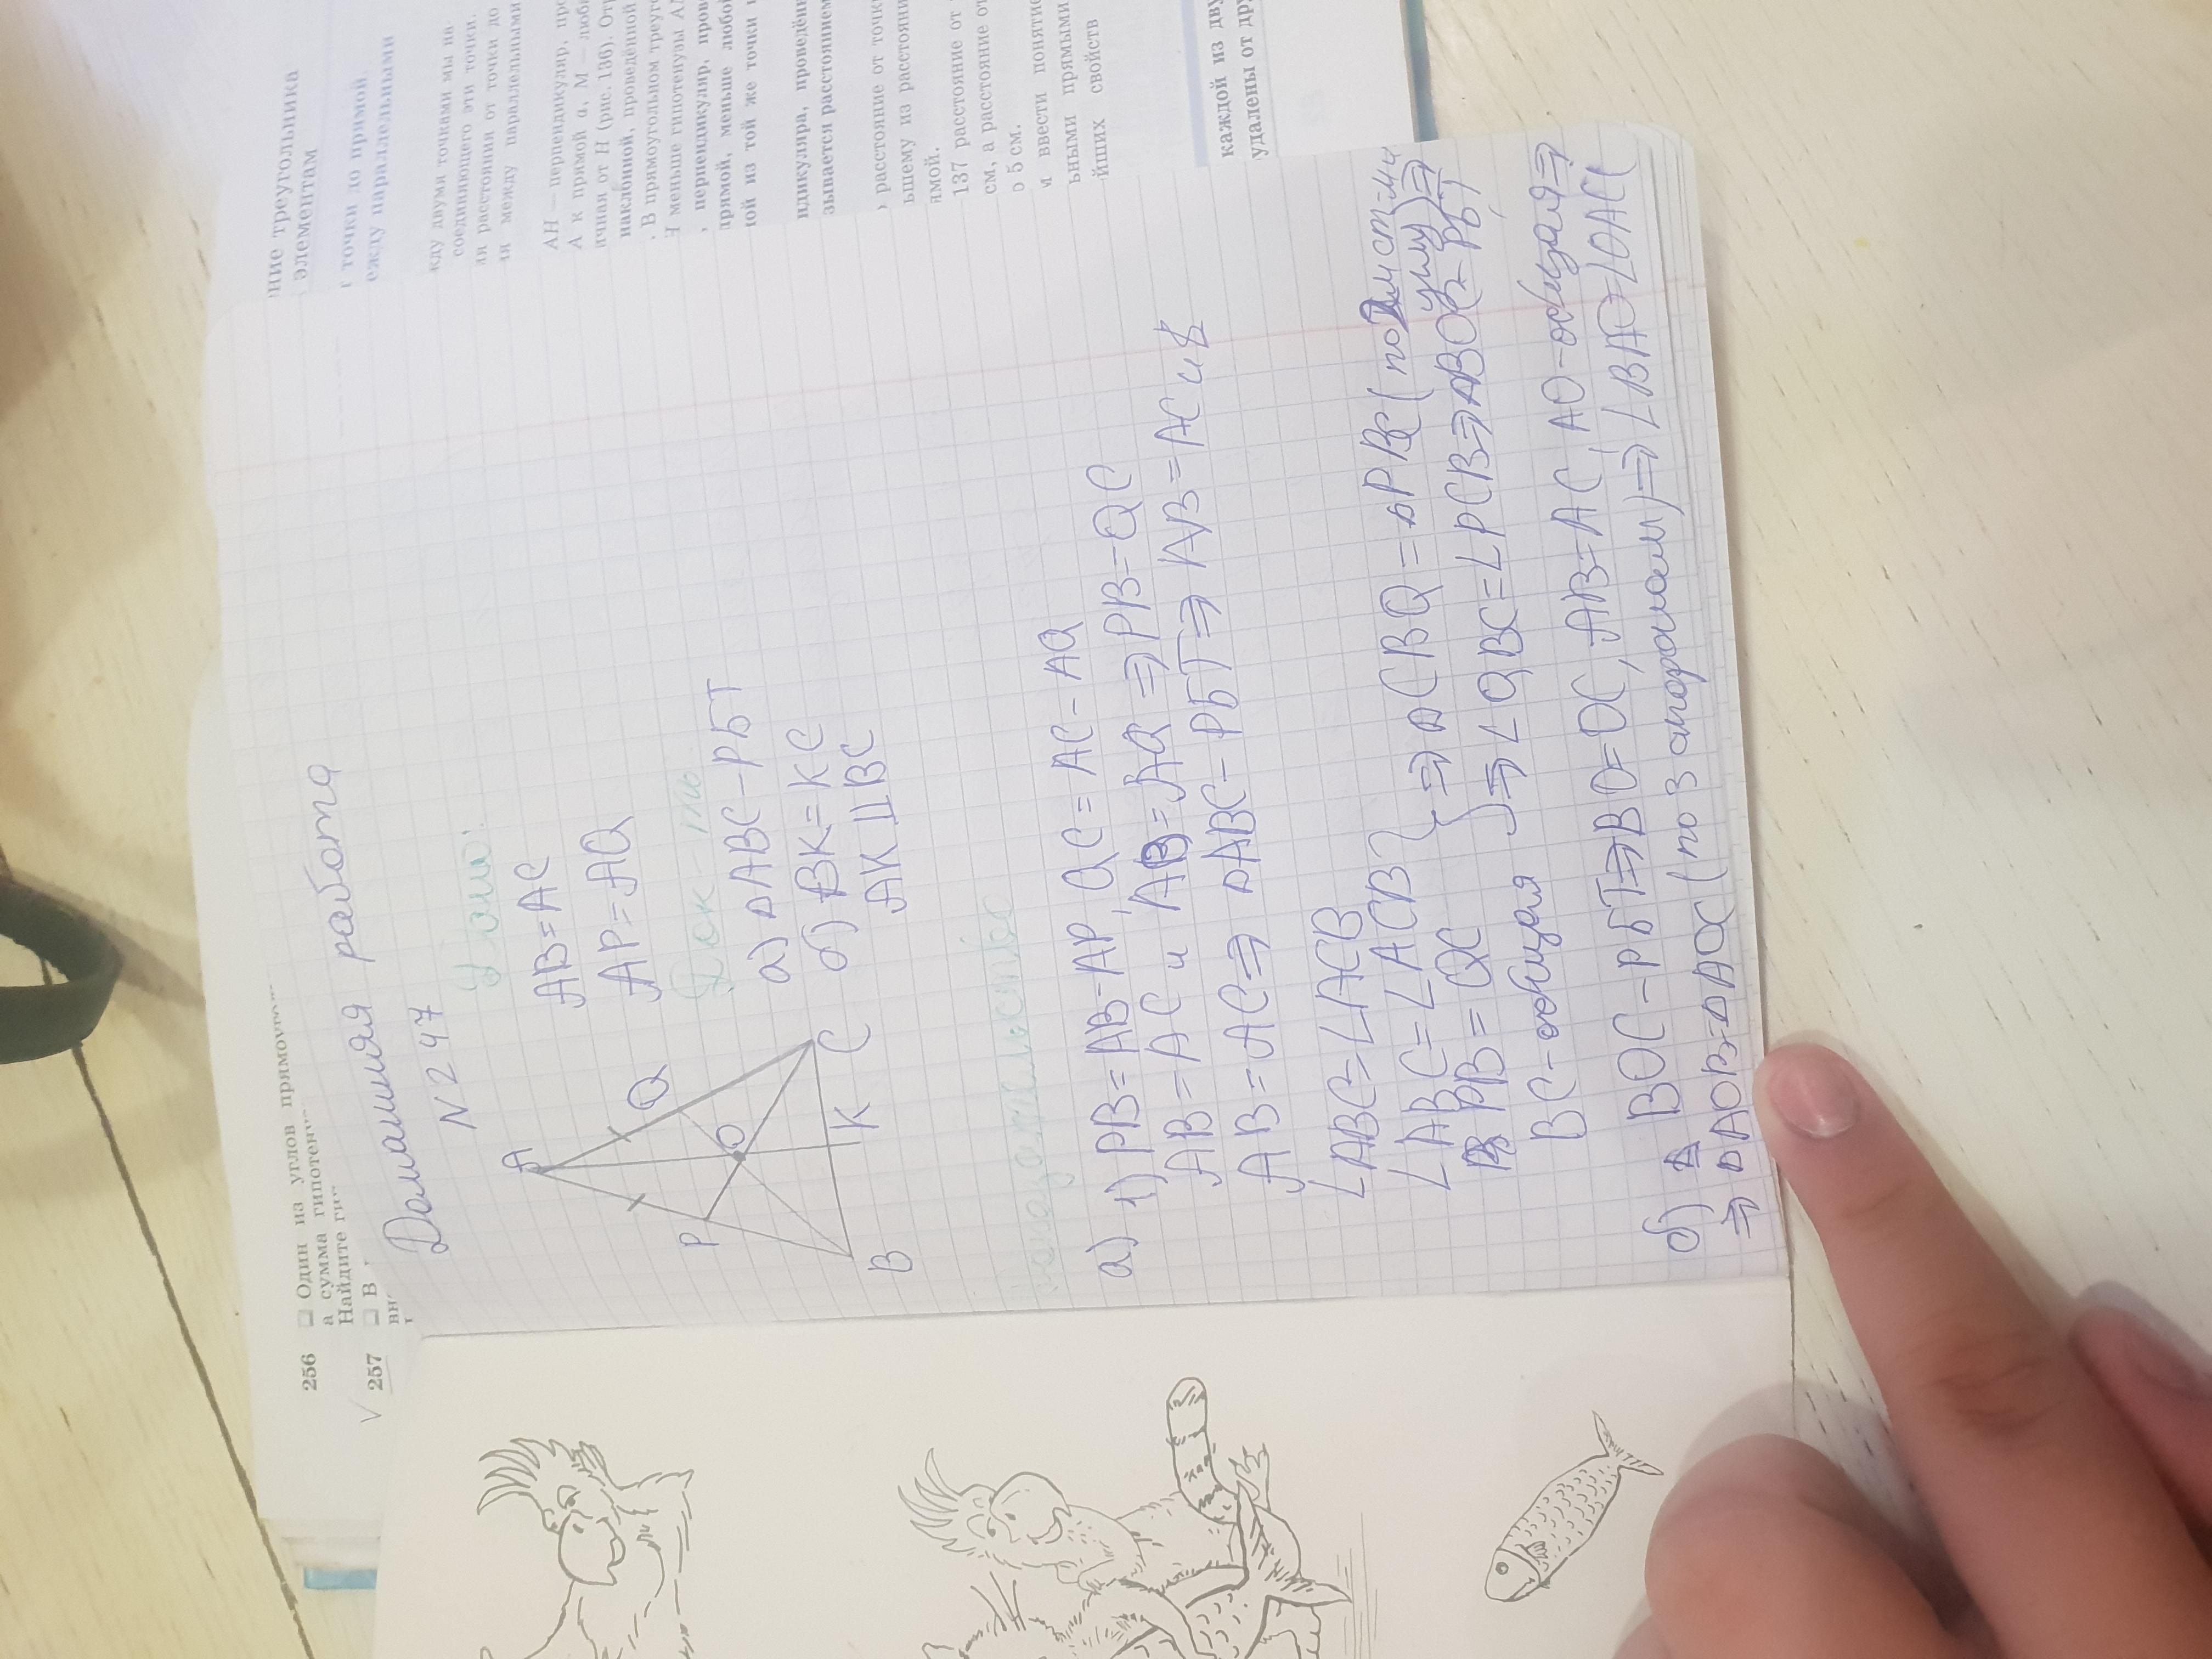 256 Один из углов прямоуг
а сумма гипотену
Найдите ги
257 В
ние треугольника
элементам
точки до прямой.
ежду параллельными
жду двумя точками мы на
соединяющего эти точки.
ия расстояния от точки до
ия между параллельными
АН — перпендикуляр, про
А к прямой a, М — люб
ичная от Н (рис. 136). Отр
наклонной, проведённой
. В прямоугольном треуг
меньше гипотенузы АМ
, перпендикуляр, пров
прямой, меньше любой
ной из той же точки
ндикуляра, проведён
зывается расстоянием
расстояние от точк
ьшему из расстояни
ямой.
137 расстояние от
см, а расстояние от
о 5 см.
ввести понятие
ьными прямыми
йших свойств
каждой из дву
удалены от др
Домашняя работа
N 247
A
Q
P
O
B
K
C
AB=AC
AP=AQ
Док-ть
а) △ABC-РБТ
б) BK=KC
AK⊥BC
Доказательство
а) 1) PB=AB-AP, QC=AC-AQ
AB=AC и AP=AQ ⇒ PB=QC
AB=AC ⇒ △ABC-РБТ ⇒ AB=AC и
∠ABC=∠ACB
∠ABC=∠ACB } ⇒ △CBQ=△PBC (по 2 и
PB=QC углу) ⇒
BC-общая } ⇒ ∠QBC=∠PCB ⇒ △BOC-РБТ,
б) △ BOC-РБТ ⇒ BO=OC, AB=AC, AO-общая ⇒
⇒ △AOB=△AOC (по 3 сторонам) ⇒ ∠BAO=∠OAC(